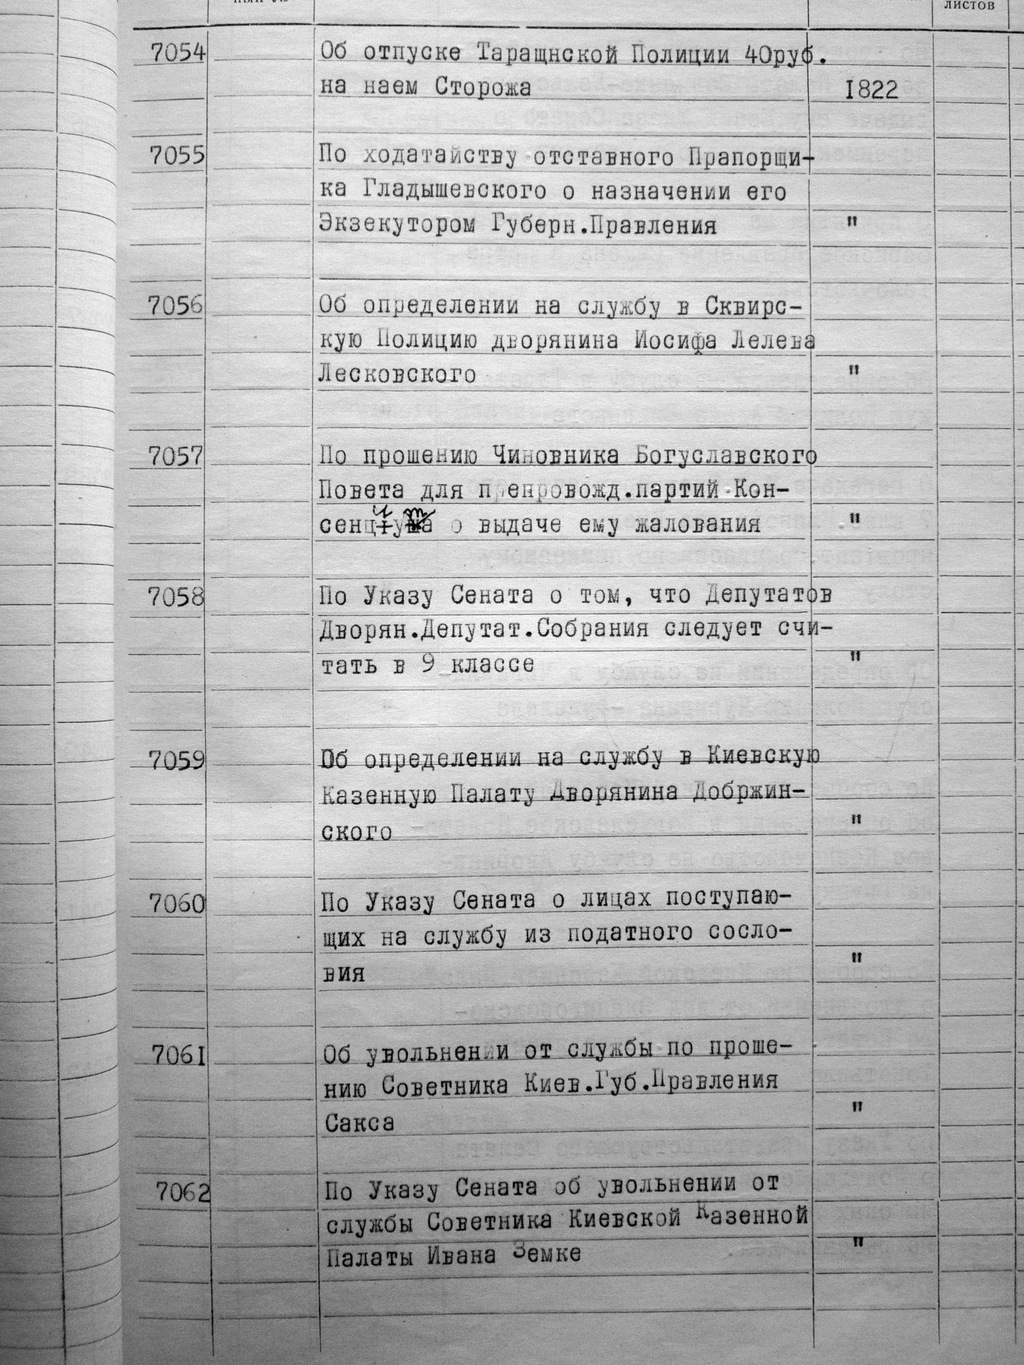 листов
7054 Об отпуске Таращнской Полиции 40руб.
на наем Сторожа 1822
7055 По ходатайству отставного Прапорщи-
ка Гладышевского о назначении его
Экзекутором Губерн.Правления "
7056 Об определении на службу в Сквирс-
кую Полицию дворянина Иосифа Лелева
Лесковского "
7057 По прошению Чиновника Богуславского
Повета для препровожд.партий Кон-
о выдаче ему жалования "
7058 По Указу Сената о том, что Депутатов
Дворян.Депутат.Собрания следует счи-
тать в 9 классе "
7059 Об определении на службу в Киевскую
Казенную Палату Дворянина Добржин-
ского "
7060 По Указу Сената о лицах поступаю-
щих на службу из податного сосло-
вия "
7061 Об увольнении от службы по проше-
нию Советника Киев.Губ.Правления
Сакса "
7062 По Указу Сената об увольнении от
службы Советника Киевской Казенной
Палаты Ивана Земке "